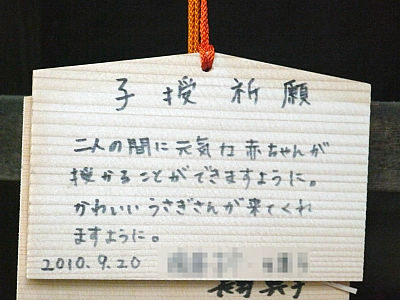 子授祈願
二人の間に元気な赤ちゃんが
授かることができますように。
かわいいうさぎさんが来てくれ
ますように。
2010.9.20